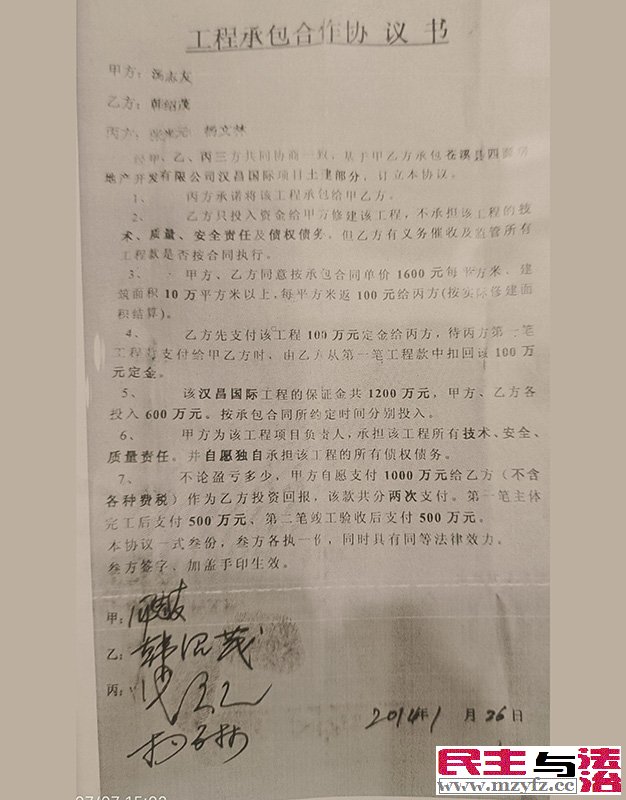 工程承包合作协 议 书
甲方：汤志友
乙方：韩绍茂
丙方：张光元 杨文林
经甲、乙、丙三方共同协商一致，基于甲乙方承包苍溪县四
地产开发有限公司汉昌国际项目土建部分，订立本协议。
1、 丙方承诺将该工程承包给甲乙方。
2、 乙方只投入资金给甲方修建该工程，不承担该工程的技
术、质量、安全责任及债权债务。但乙方有义务催收及监管所有
工程款是否按合同执行。
3、 甲方、乙方同意按承包合同单价1600元每平方米、建
筑面积10万平方米以上，每平方米返100元给丙方(按实际修建面
积结算)。
4、 乙方先支付该工程100万元定金给丙方，待丙方第一笔
工程款支付给甲乙方时，由乙方从第一笔工程款中扣回该100万
元定金。
5、 该汉昌国际工程的保证金共1200万元，甲方、乙方各
投入600万元。按承包合同所约定时间分别投入。
6、 甲方为该工程项目负责人，承担该工程所有技术、安全、
质量责任。并自愿独自承担该工程的所有债权债务。
7、 不论盈亏多少，甲方自愿支付1000万元给乙方（不含
各种费税）作为乙方投资回报，该款共分两次支付。第一笔主体
完工后支付500万元、第二笔竣工验收后支付500万元。
本协议一式叁份，叁方各执一份，同时具有同等法律效力。
叁方签字、加盖手印生效。
甲：
乙：韩绍茂
丙：
2014年1月26日
民主与法治
www.mzyfz.cc